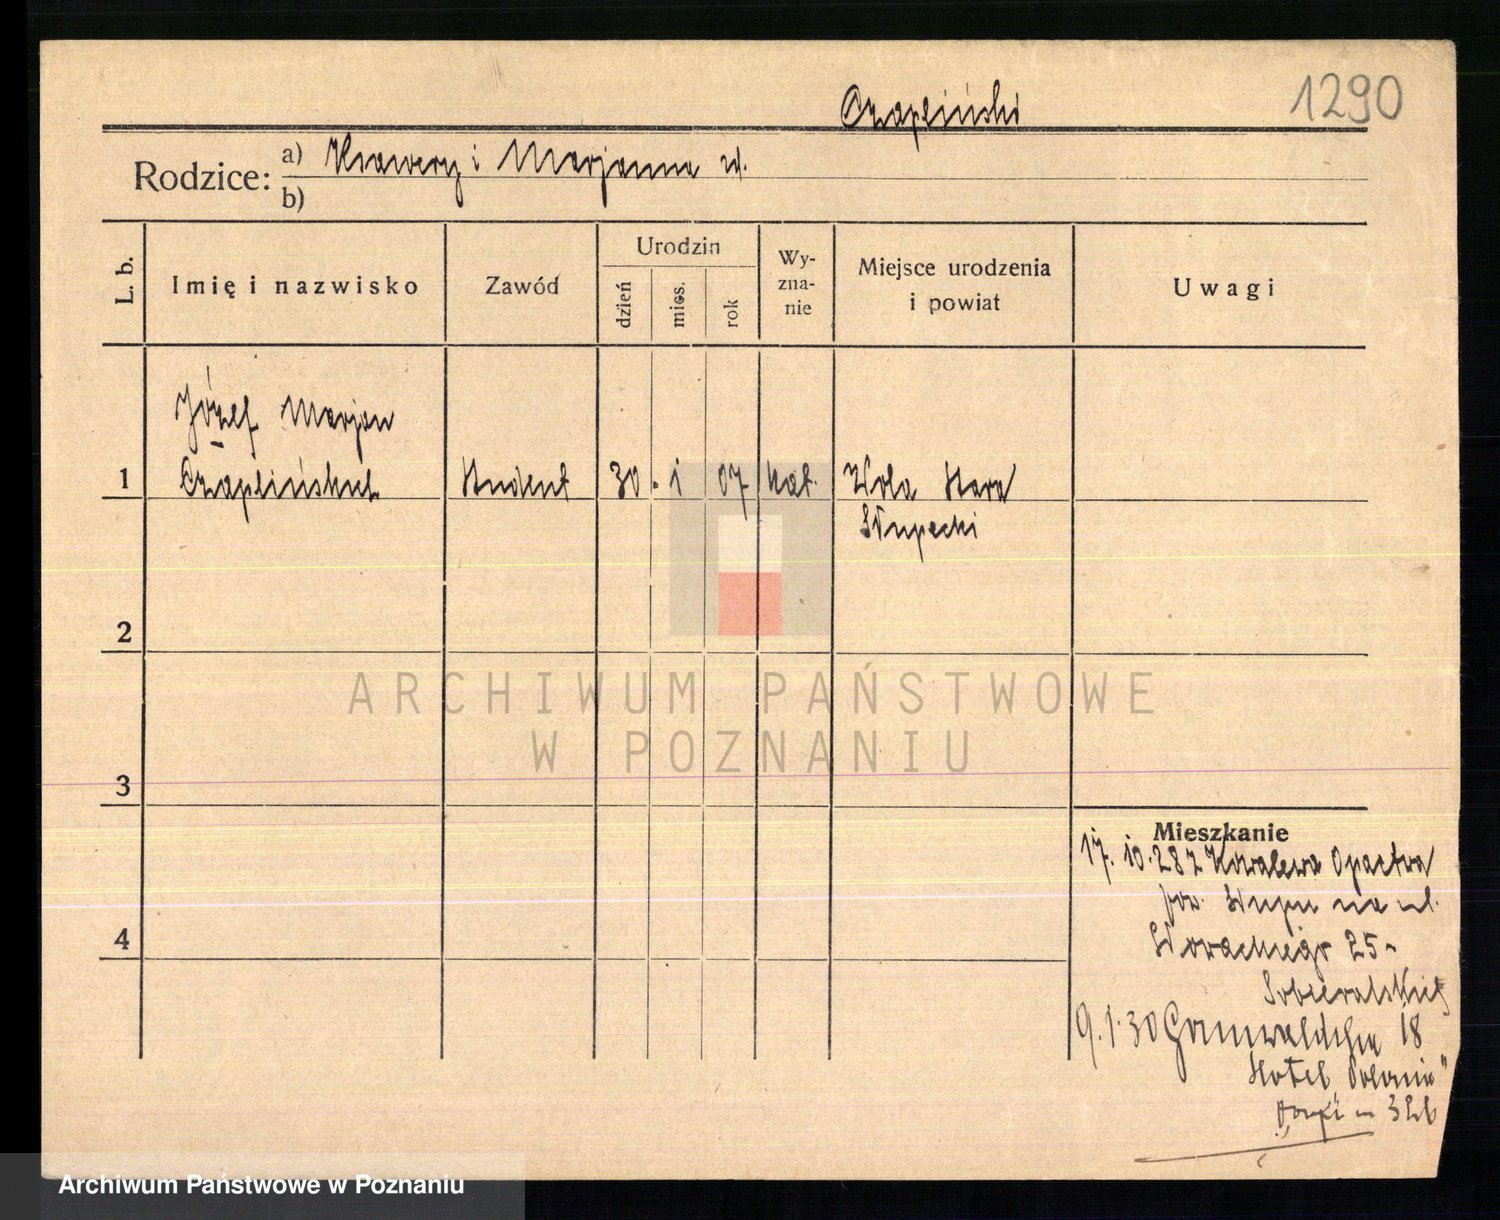 1290
Czapliński
Rodzice: a) Ksawery i Marjanna
b)
L. b.
Imię i nazwisko
Zawód
Urodzin
dzień
mies.
rok
Wy-
zna-
nie
Miejsce urodzenia
i powiat
Uwagi
Józef Marjan
1 Student 30. 1 07 kat. Wola Stara
Słupecki
2
ARCHIWUM PAŃSTWOWE
W POZNANIU
3
Mieszkanie
17. 10.28 z Kowalewa Opactwa
pow. Słupca na ul.
Słowackiego 25
9.1.30 Grunwaldzka 18
Hotel "Polonia"
4
Archiwum Państwowe w Poznaniu